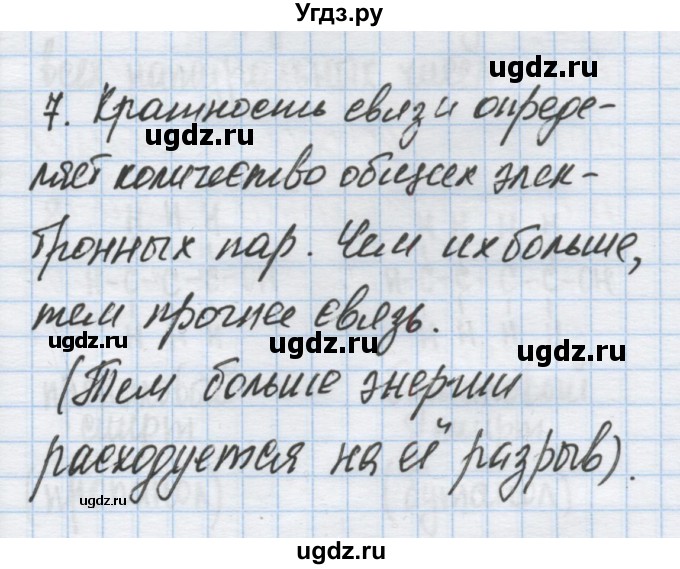 Угдз.ру
ugdz.ru
7. Кратность связи опреде-
ugdz.ru
ugdz.ru
ляет количество общих элек-
тронных пар. Чем их больше,
тем прочнее связь.
ugdz.ru
ugdz.ru
(Тем больше энергии
расходуется на её разрыв).
ugdz.ru
ugdz.ru
ugdz.ru